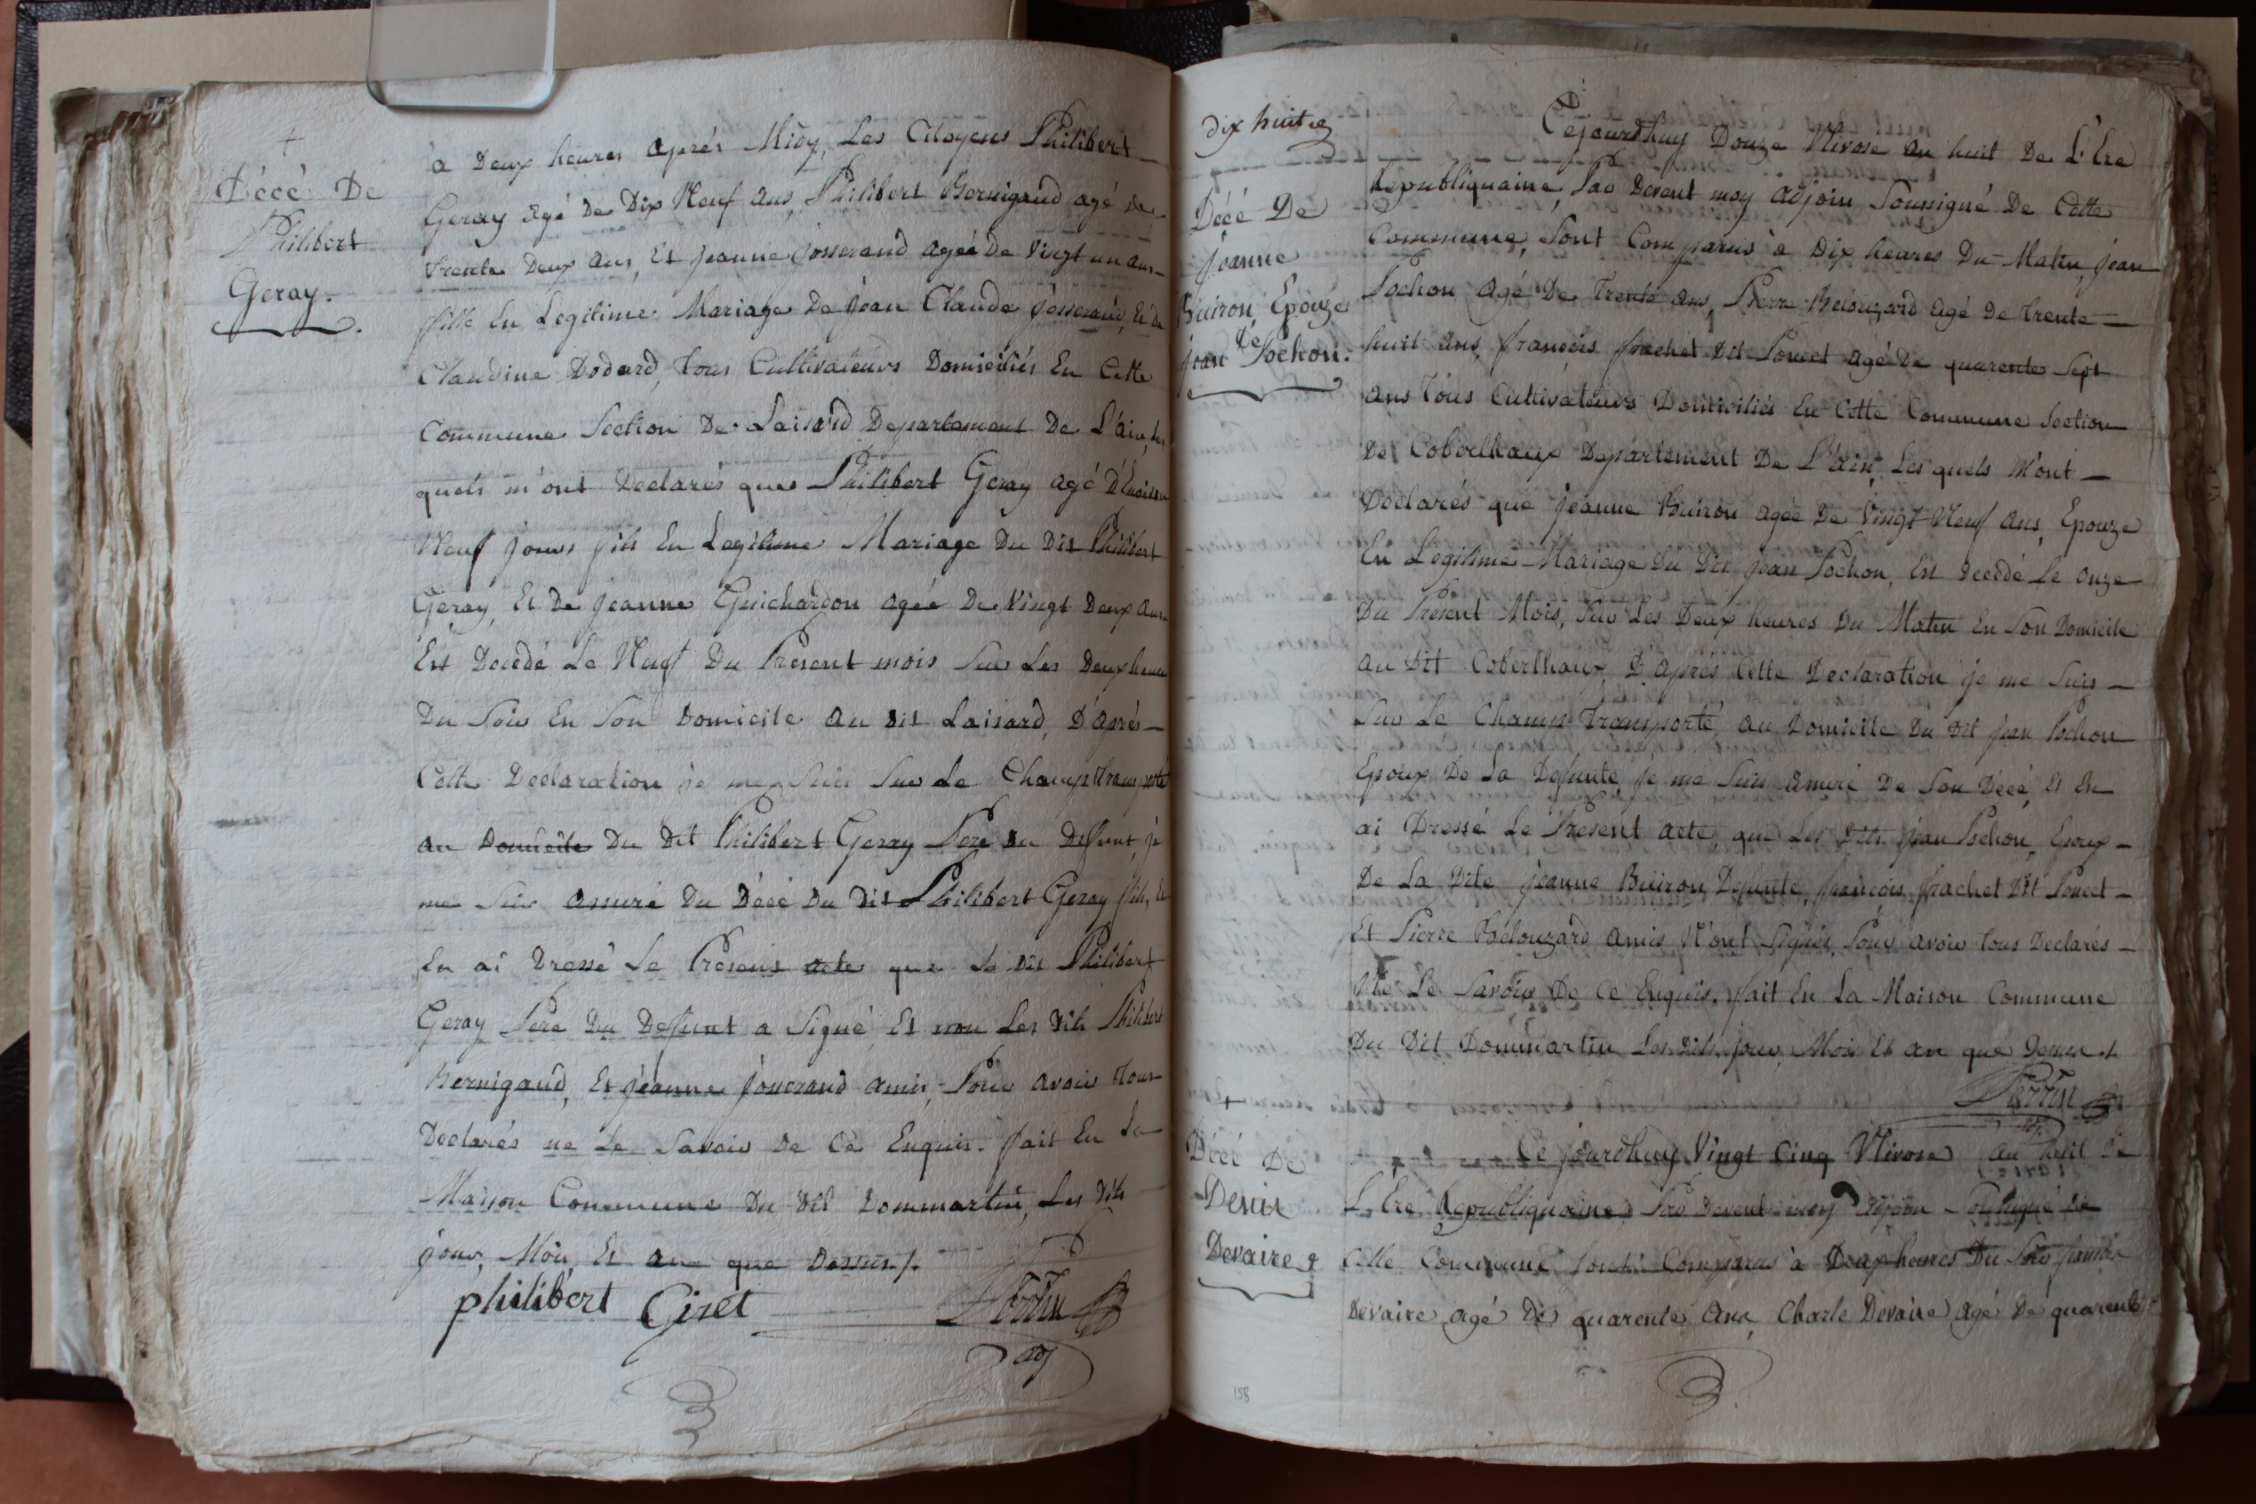 Décé De
Philibert
Geray.
a Deux heures après Midy, Les Citoyens Philibert
Geray agé De Dix Neuf ans, Philibert Bernigaud agé de
trente Deux ans, Et Jeanne Josserand agée De Vingt un ans
fille En Legitime Mariage De jean Claude Josserand, Et de
Claudine Dodard, tous Cultivateurs Domiciliés En Cette
Commune Section De Laisard Departement De L'ain, les
quels m'ont Declarés que Philibert Geray agé D'Environ
Neuf jours fils En Legitime Mariage Du Dit Philibert
Geray, Et De Jeanne Guichardon agée De Vingt Deux ans
Est Decedé Le Neuf Du Present mois Sur Les Deux heures
Du Soir En Son Domicile au dit Laisard, D'après
Cette Declaration je me Suis Sur Le Champ transporté
au Domicile Du Dit Philibert Geray Pere Du Defunt, je
me Suis assuré Du Décé Du Dit Philibert Geray fils, Et
En ai Dressé Le Present acte que Le dit Philibert
Geray Pere Du Defunt a Signé, Et non Les dits Philibert
Bernigaud, Et jeanne Jousserand amis, Pour avoir tous
Declarés ne Le Savoir De Ce Enquis. fait En La
Maison Commune Du dit Dommartin, Les dits
jour, Mois, Et an que Dessus /.
philibert Giret Perrin
adj
dix huit
Décé De
jeanne
Buiron, Epouze
De
jean Pochon.
Cejourdhuy Douze Nivose an huit De L'Ere
Republiquaine, Par Devent moy adjoin Soussigné De Cette
Commune, Sont Comparus à Dix heures Du Matin, jean
Pochon agé De Trente ans, Pierre Belouzard agé De trente
huit ans, françois frachet Dit Poncet agé De quarente Sept
ans Tous Cultivateurs Domiciliés En Cette Commune Section
De Coberthoux Departement De L'ain, Les quels M'ont
Declarés que jeanne Buiron agée De Vingt Neuf ans, Epouze
En Legitime Mariage Du Dit jean Pochon, Est Decedé Le onze
Du Present Mois, Sur Les Deux heures Du Matin En Son Domicile
au Dit Coberthoux, D'après Cette Declaration je me Suis
Sur Le Champ Transporté au Domicile Du Dit jean Pochon
Epoux De La Defunte, je me Suis assuré De Son Décé, Et En
ai Dressé Le Present acte, que Les Dits jean Pochon, Epoux
De La Dite jeanne Buiron Defunte, françois frachet Dit Poncet
Et Pierre Belouzard amis N'ont Signés, Pour avoir tous Declarés
Ne Le Savoir De Ce Enquis. fait En La Maison Commune
Du Dit Dommartin Les dits jour, Mois Et an que Dessus /.
Perrin
adj
Décé De
Denis
Devaire
Ce jourdhuy Vingt Cinq Nivose an huit De
L'Ere Republiquaine, Par Devent moy adjoin Soussigné De
Cette Commune Sont Comparus à Deux heures Du Soir
Devaire agé De quarente Ans, Charle Devaire agé De quarente
158